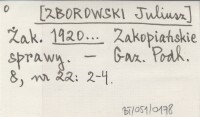 [ZBOROWSKI Juliusz]
Żak. 1920... Zakopiańskie
sprawy. — Gaz. Podh.
8, nr 22: 2-4.
BT/051/0178